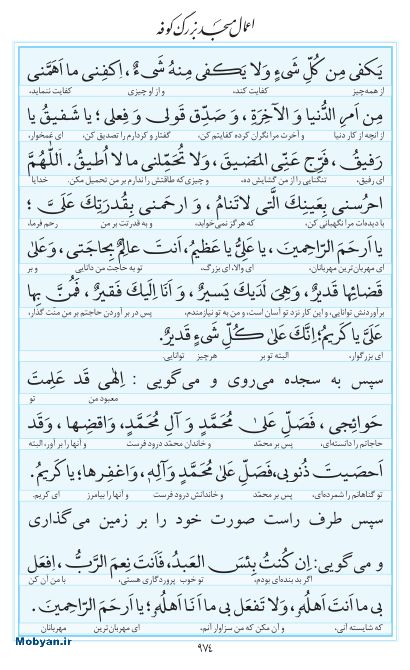 اعمال مسجد بزرگ کوفه
يَكفى مِن كُلِّ شَىءٍ وَلا يَكفى مِنهُ شَىءٌ، اِكفِنى ما اَهَمَّنى
از همه‌چیز کفایت کند، و از او چیزی کفایت ننماید،
مِن اَمرِ الدُّنيا وَ الآخِرَةِ، وَ صَدِّق قَولى وَ فِعلى؛ يا شَفيقُ يا
از آنچه از کار دنیا و آخرت مرا نگران کرده کفایتم کن، گفتار و کردارم را تصدیق کن، ای غمخوار،
رَفيقُ، فَرِّج عَنِّى المَضيقَ، وَلا تُحَمِّلنى ما لا اُطيقُ. اَللّٰهُمَّ
ای رفیق، تنگنایی را از من گشایش ده، و چیزی که طاقتش را ندارم بر من تحمیل مکن. خدایا
احرُسنى بِعَينِكَ الَّتى لاتَنامُ، وَ ارحَمنى بِقُدرَتِكَ عَلَىَّ؛
با دیده‌ات مرا نگهبانی کن، که هرگز نمی‌خوابد، و به قدرتت بر من رحم فرما،
يا اَرحَمَ الرّاحِمينَ، يا عَلِىُّ يا عَظيمُ، اَنتَ عالِمٌ بِحاجَتى، وَعَلىٰ
ای مهربان‌ترین مهربانان، ای والا، ای بزرگ، تو به حاجت من دانایی و بر
قَضائِها قَديرٌ، وَهِىَ لَدَيكَ يَسيرٌ، وَ اَنَا اِلَيكَ فَقيرٌ، فَمُنَّ بِها
برآوردنش توانایی، و این کار نزد تو آسان است، و من به تو نیازمندم، پس در برآوردن حاجتم بر من منّت گذار،
عَلَىَّ يا كَريمُ؛ اِنَّكَ عَلىٰ كُلِّ شَىءٍ قَديرٌ.
ای بزرگوار، البته تو بر هرچیز توانایی.
سپس به سجده می‌روی و می‌گویی: اِلٰهى قَد عَلِمتَ
معبود من تو
حَوائِجى، فَصَلِّ عَلىٰ مُحَمَّدٍ وَ آلِ مُحَمَّدٍ، وَاقضِها، وَقَد
حاجاتم را دانسته‌ای، پس بر محمّد و خاندان محمّد درود فرست و آنها را بر آور، البته
اَحصَيتَ ذُنوبى، فَصَلِّ عَلىٰ مُحَمَّدٍ وَآلِهِ، وَاغفِرها؛ يا كَريمُ.
تو گناهانم را شمرده‌ای، پس بر محمّد و خاندانش درود فرست و آنها را بیامرز ای کریم.
سپس طرف راست صورت خود را بر زمین می‌گذاری
و می‌گویی: اِن كُنتُ بِئسَ العَبدُ، فَاَنتَ نِعمَ الرَّبُّ، اِفعَل
اگر بد بنده‌ای بودم، تو خوب پروردگاری هستی، با من آن کن
بى ما اَنتَ اَهلُهُ، وَلا تَفعَل بى ما اَنَا اَهلُهُ؛ يا اَرحَمَ الرّاحِمينَ.
که شایسته آنی، و آن مکن که من سزاوار آنم، ای مهربان‌ترین مهربانان
۹۷۴
Mobyan.ir